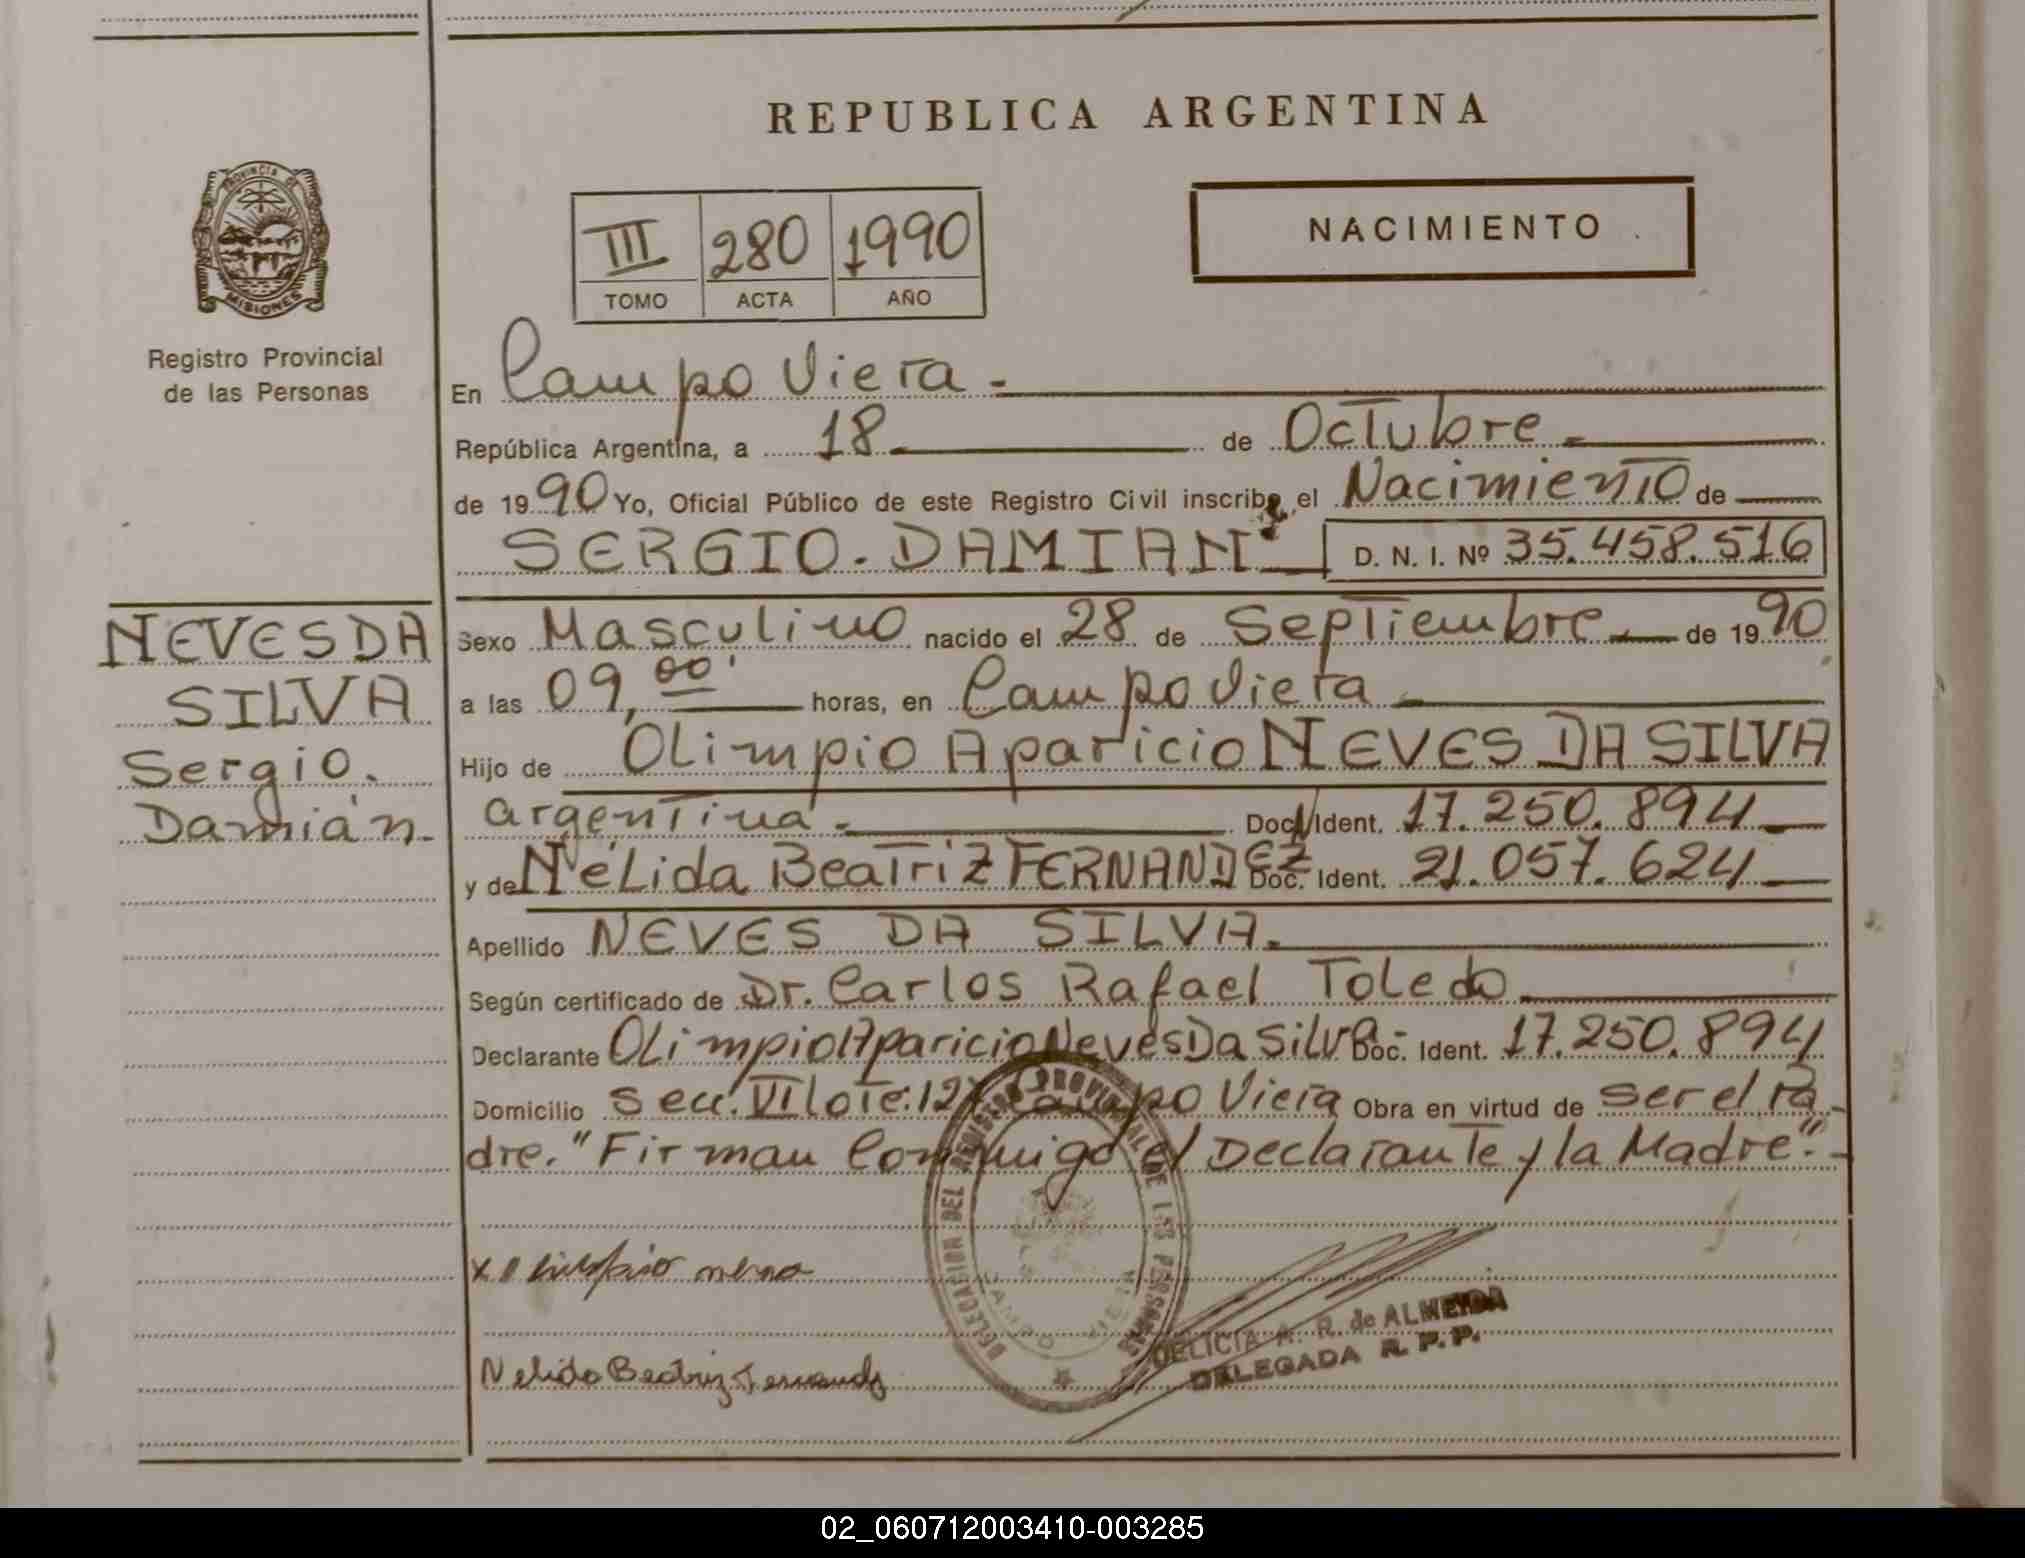 REPUBLICA ARGENTINA
PROVINCIA DE
MISIONES
Registro Provincial
de las Personas
III 280 1990
TOMO ACTA AÑO
NACIMIENTO
En Campo Viera -
República Argentina, a 18 de Octubre -
de 1990 Yo, Oficial Público de este Registro Civil inscribo el Nacimiento de
SERGIO. DAMIAN D. N. I. Nº 35.458.516
NEVES DA
SILVA
Sergio.
Damián.
Sexo Masculino nacido el 28 de Septiembre de 1990
a las 09,00' horas, en Campo Viera
Hijo de Olimpio Aparicio NEVES DA SILVA
argentina - Doc. Ident. 17.250.894
y de Nélida Beatriz FERNANDEZ Doc. Ident. 21.057.624
Apellido NEVES DA SILVA.
Según certificado de Dr. Carlos Rafael Toledo
Declarante Olimpio Aparicio Neves Da Silva - Doc. Ident. 17.250.894
Domicilio Secc. VI lote: 12 Campo Viera Obra en virtud de ser el Pa-
dre. "Firman Conmigo el Declarante y la Madre". -
DELEGACION DEL REGISTRO PROVINCIAL DE LAS PERSONAS
CAMPO VIERA
Nelida Beatriz Fernandez
DELICIA A. R. de ALMEIDA
DELEGADA R. P. P.
02_060712003410-003285